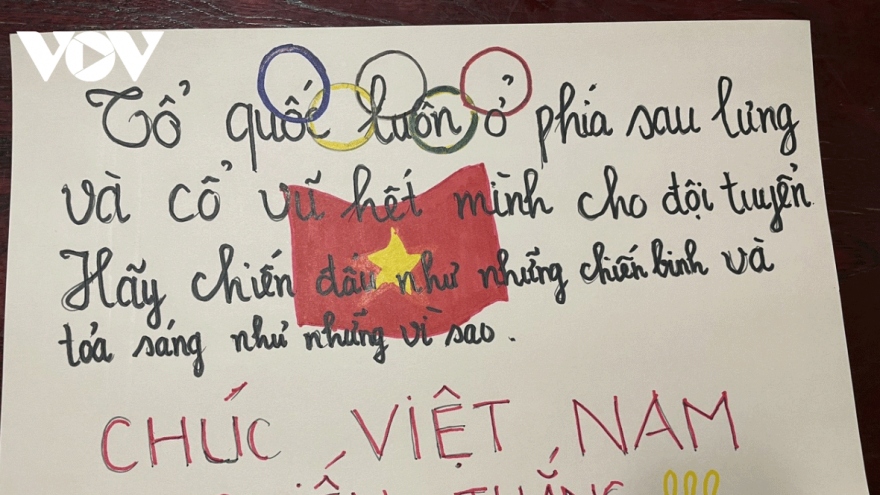 VOV
Tổ quốc luôn ở phía sau lưng
và cổ vũ hết mình cho đội tuyển
Hãy chiến đấu như những chiến binh và
tỏa sáng như những vì sao.
CHÚC VIỆT NAM
THẮNG !!!